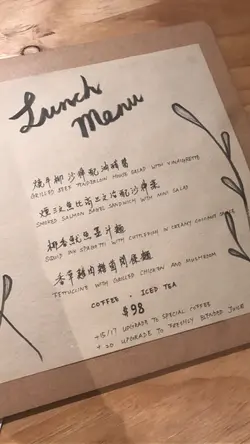 Lunch
Menu
燒牛柳沙律配油醋醬
GRILLED BEEF TENDERLOIN HOUSE SALAD WITH VINAIGRETTE
煙三文魚比高三文治配沙律菜
SMOKED SALMON BAGEL SANDWICH WITH MINI SALAD
椰香魷魚墨汁麵
SQUID INK SPAGHETTI WITH CUTTLEFISH IN CREAMY COCONUT SAUCE
香草雞肉雜菌闊條麵
FETTUCCINE WITH GRILLED CHICKEN AND MUSHROOM
COFFEE · ICED TEA
$98
+15/17 UPGRADE TO SPECIAL COFFEE
+20 UPGRADE TO FRESHLY BLENDED JUICE